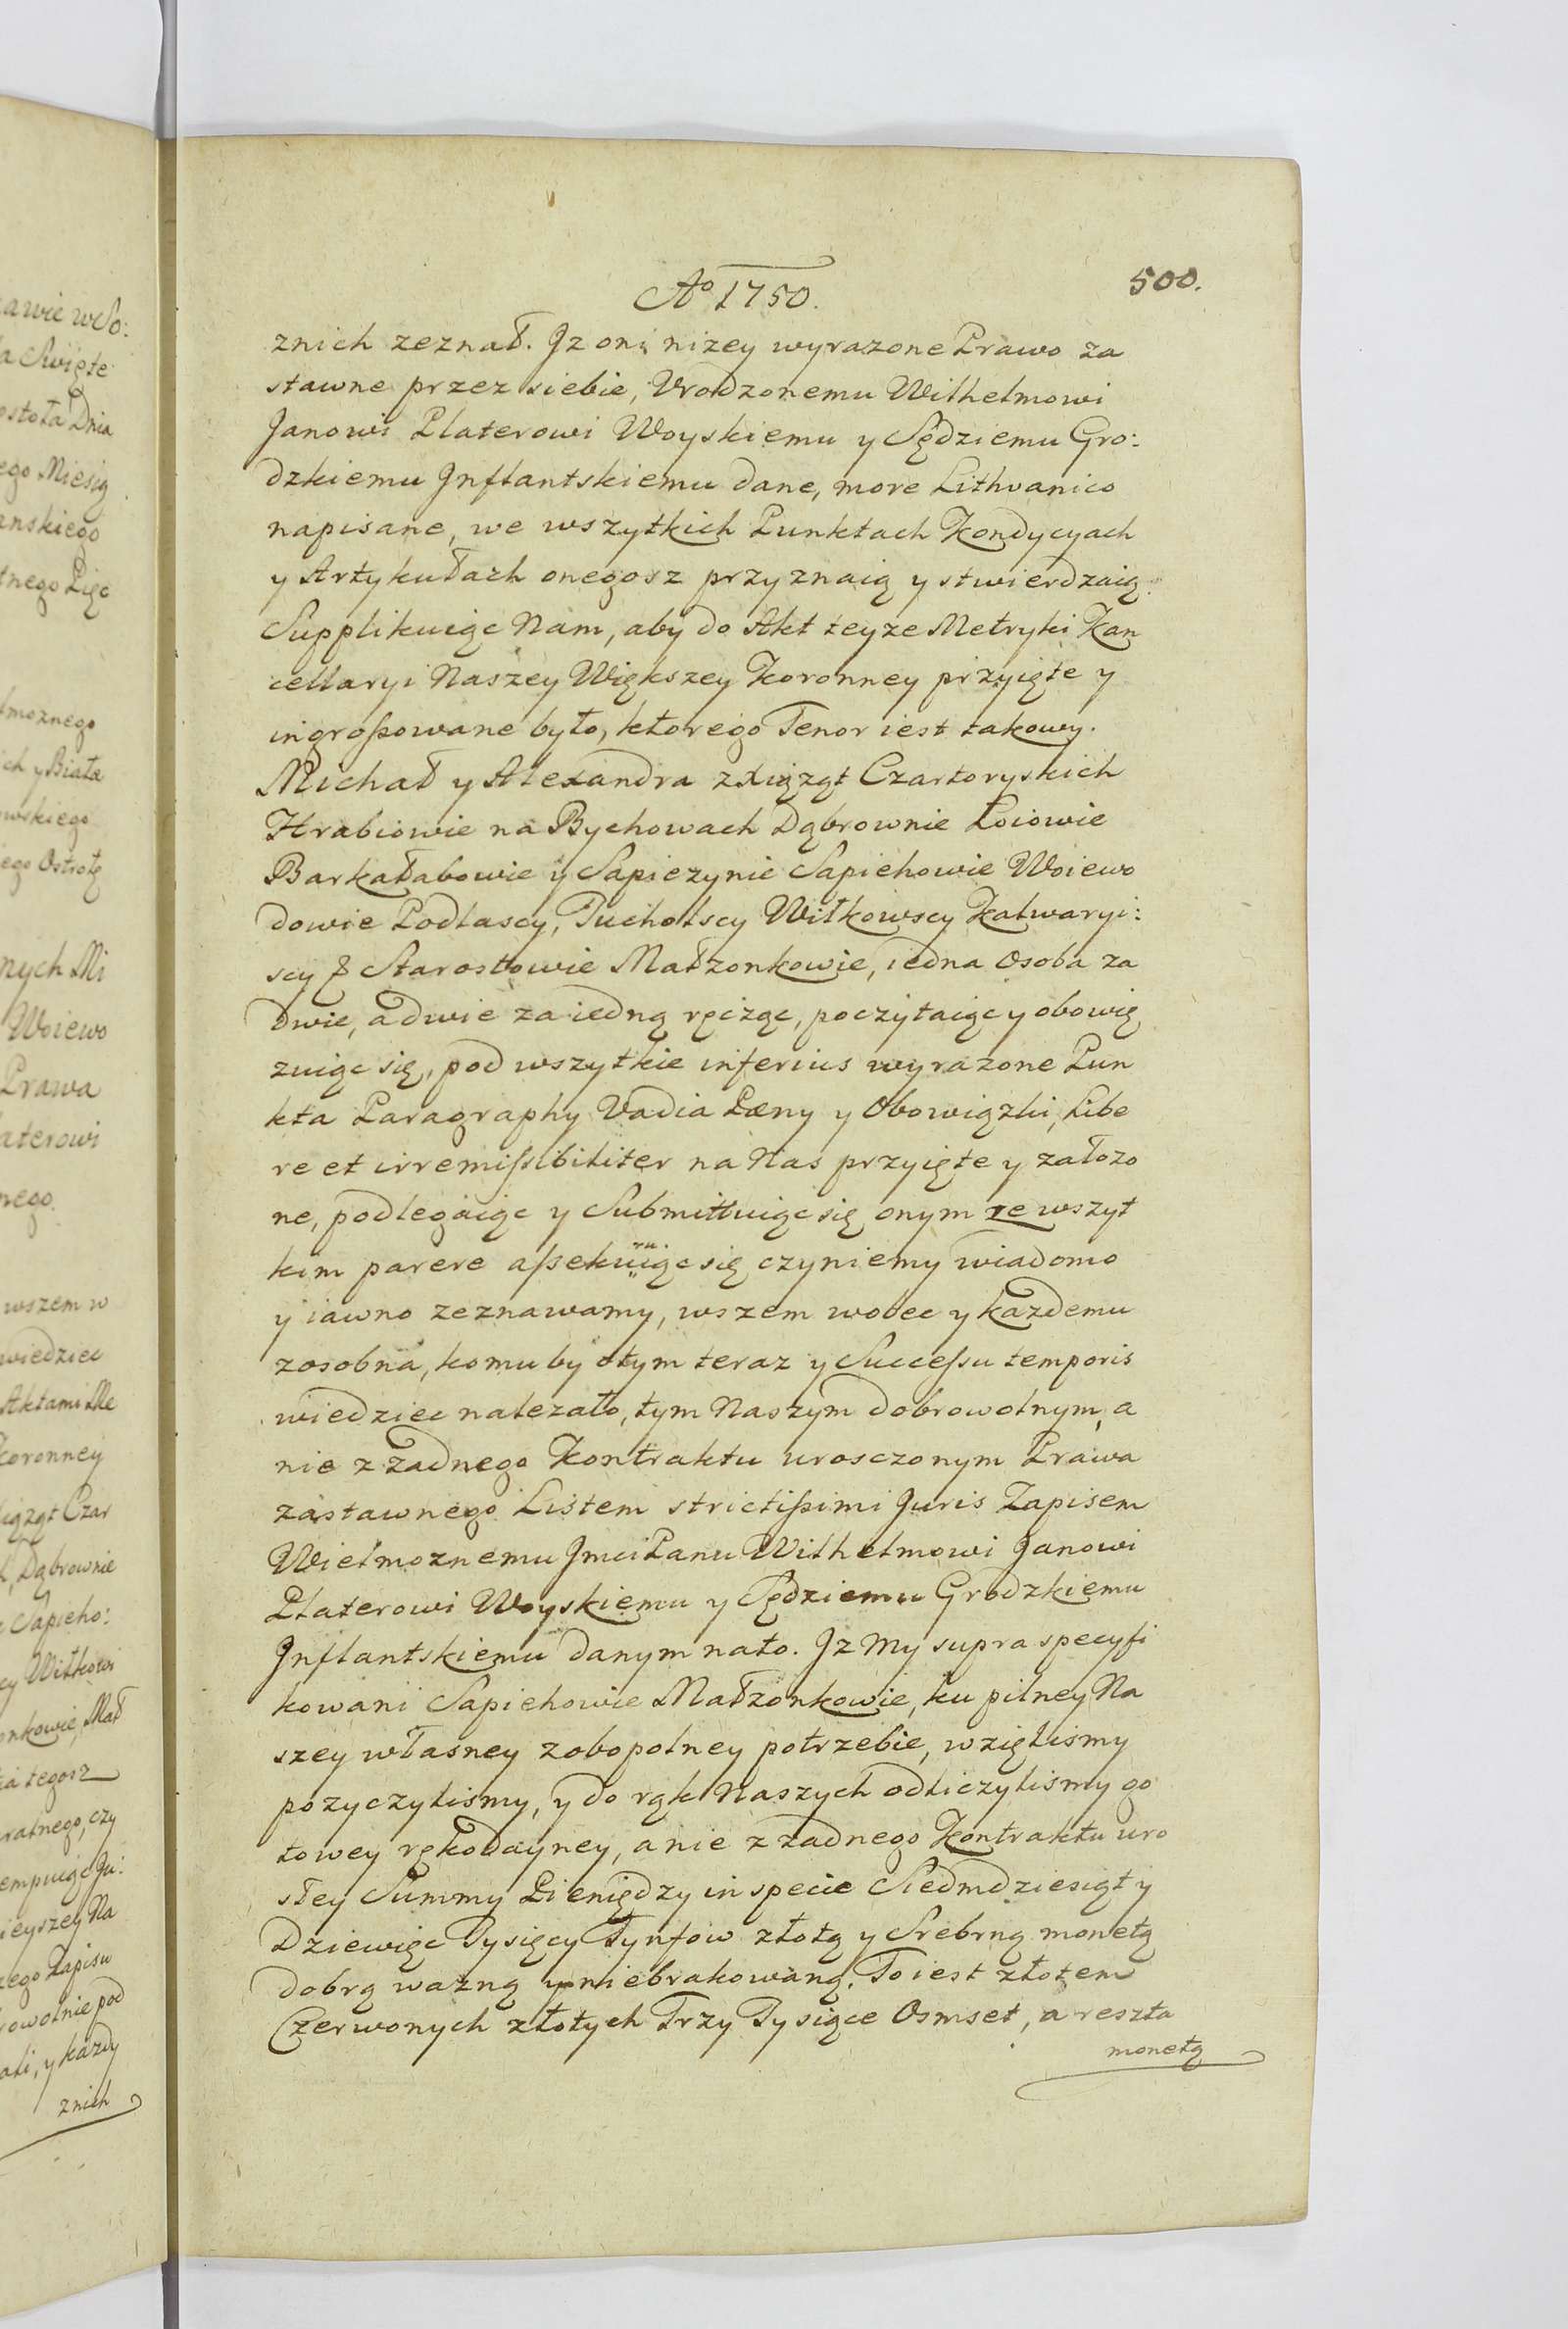 Aº 1750.
500.
znich zeznał. Jz oni nizey wyrazone Prawo za
stawne przez siebie, Vrodzonemu Wilhelmowi
Janowi Platerowi Woyskiemu y Sędziemu Gro:
dzkiemu Jnflantskiemu dane, more Lithvanico
napisane, we wszytkich Punktach Kondycyach
y Artykułach onegosz przyznaią y stwierdzaią.
Supplikuiąc Nam, aby do Akt teyze Metryki Kan
cellaryi Naszey Większey Koronney przyięte y
ingroßowane było, ktorego Tenor iest takowy.
Michał y Alexandra z Xiąząt Czartoryskich
Hrabiowie na Bychowach Dąbrownie Łoiowie
Barkałabowie y Sapiezynie Sapiehowie Woiewo
dowie Podlascy, Tucholscy Wiłkowscy Kalwaryi:
scy & Starostowie Małzonkowie, iedna Osoba za
dwie, a dwie za iedną ręcząc, poczytaiąc y obowią
zuiąc się, pod wszytkie inferius wyrazone Pun
kta Paragraphy Vadia Pæny y Obowiązki, Libe
re et irremißibiliter na Nas przyięte y załozo
ne, podlegaiąc y Submittuiąc się onym ze wszyt
kim parere aßekuruiąc się czyniemy wiadomo
y iawno zeznawamy, wszem wobec y kazdemu
zosobna, komu by otym teraz y Succeßu temporis
wiedziec nalezało, tym Naszym dobrowolnym, a
nie z zadnego Kontraktu urosczonym Prawa
zastawnego Listem strictißimi Juris Zapisem
Wielmoznemu Jmci Panu Wilhelmowi Janowi
Platerowi Woyskiemu y Sędziemu Grodzkiemu
Jnflantskiemu danym nato. Jz My supra specyfi
kowani Sapiehowie Małzonkowie, ku pilney Na
szey własney zobopolney potrzebie, wzięlismy
pozyczylismy, y do rąk Naszych odliczylismy go
towey rękodayney, a nie z zadnego Kontraktu uro
słey Summy Pieniędzy in specie Siedmdziesiąt y
Dziewięc Tysięcy Tynfow złotą y Srebrną monetą
dobrą wazną y niebrakowaną. To iest złotem
Czerwonych złotych Trzy Tysiące Osmset, a reszta
monetą